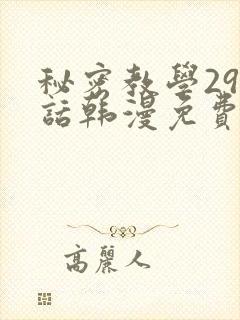 秘密教學29
話韩漫免費
高麗人